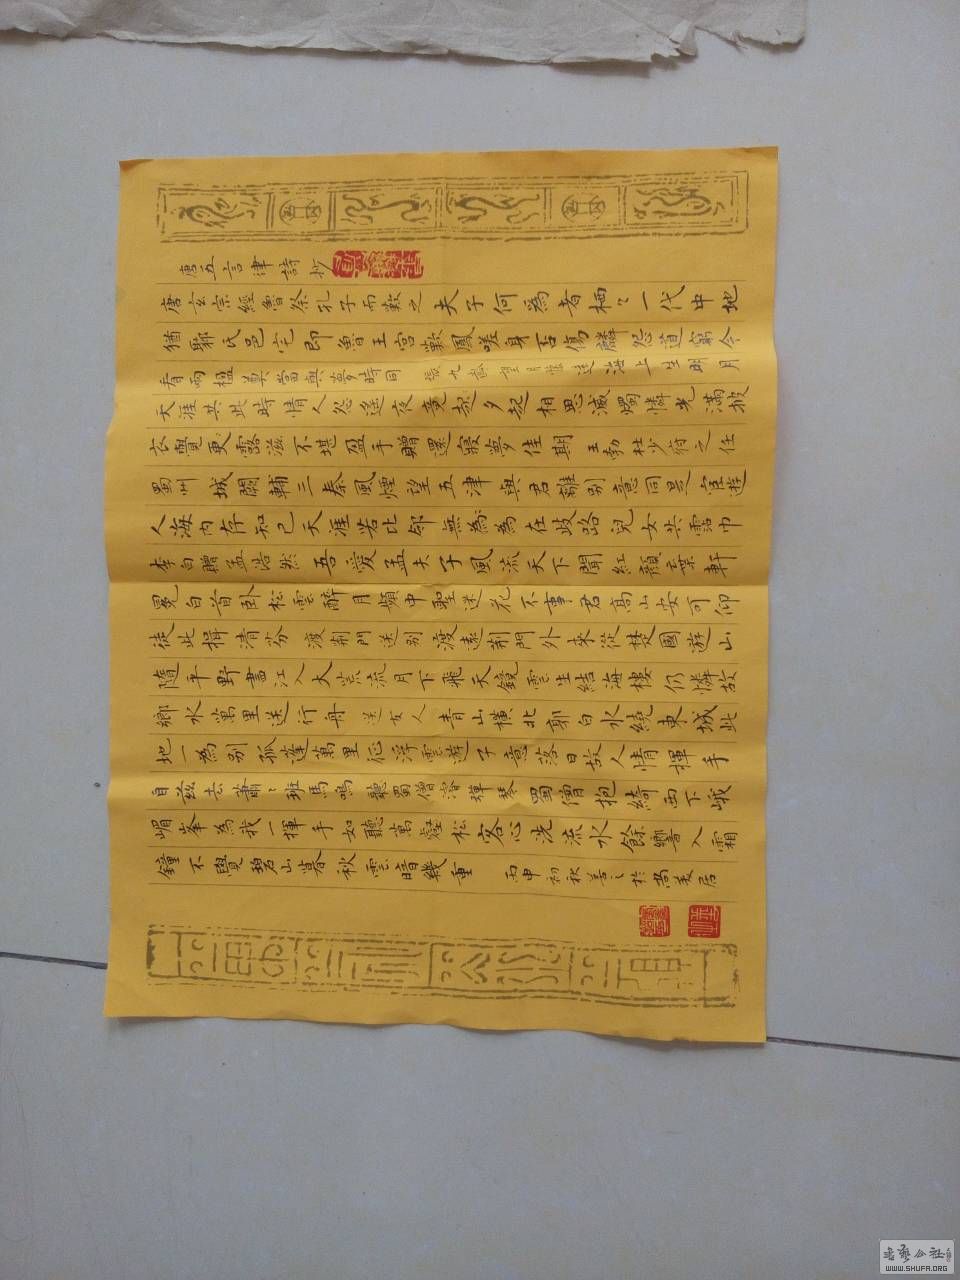 唐五言律詩抄
唐玄宗經魯祭孔子而歎之夫子何為者栖〻一代中地
猶鄹氏邑宅即魯王宮歎鳳嗟身否傷麟怨道窮今
看兩楹奠當與夢時同張九齡望月懷遠海上生明月
天涯共此時情人怨遙夜竟起夕起相思滅燭憐光滿披
衣覺更露滋不堪盈手贈還寢夢佳期王勃杜少府之任
蜀州城闕輔三秦風煙望五津與君離別意同是宦遊
人海內存知己天涯若比鄰無為為在歧路兒女共霑巾
李白贈孟浩然吾愛孟夫子風流天下聞紅顏棄軒
冕白首卧松雲醉月頻中聖迷花不事君高山安可仰
徒此揖清芬渡荊門送別渡遠荊門外來從楚國遊山
隨平野盡江入大荒流月下飛天鏡雲生結海樓仍憐故
鄉水萬里送行舟送友人青山橫北郭白水繞東城此
地一為別孤蓬萬里征浮雲遊子意落日故人情揮手
自茲去蕭〻班馬鳴聽蜀僧濬彈琴蜀僧抱綺西下峨
嵋峯為我一揮手如聽萬壑松客心洗流水餘響入霜
鐘不覺碧山暮秋雲暗幾重丙申初秋善〻於尚美居
WWW.SHUFA.ORG